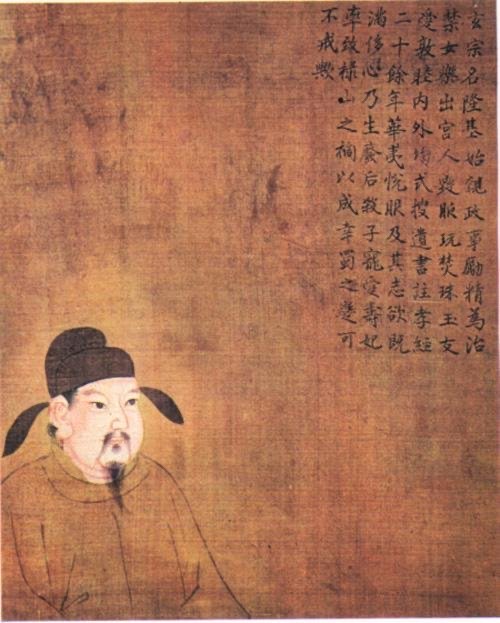 玄宗名隆基始親政事勵精為治
禁女樂出宮人毀服玩焚珠玉友
愛敦睦內外均式搜遺書註孝經
二十餘年華夷悅服及其志欲既
滿侈心乃生廢后殺子寵愛壽妃
率致祿山之禍以成幸蜀之蹙可
不戒歟